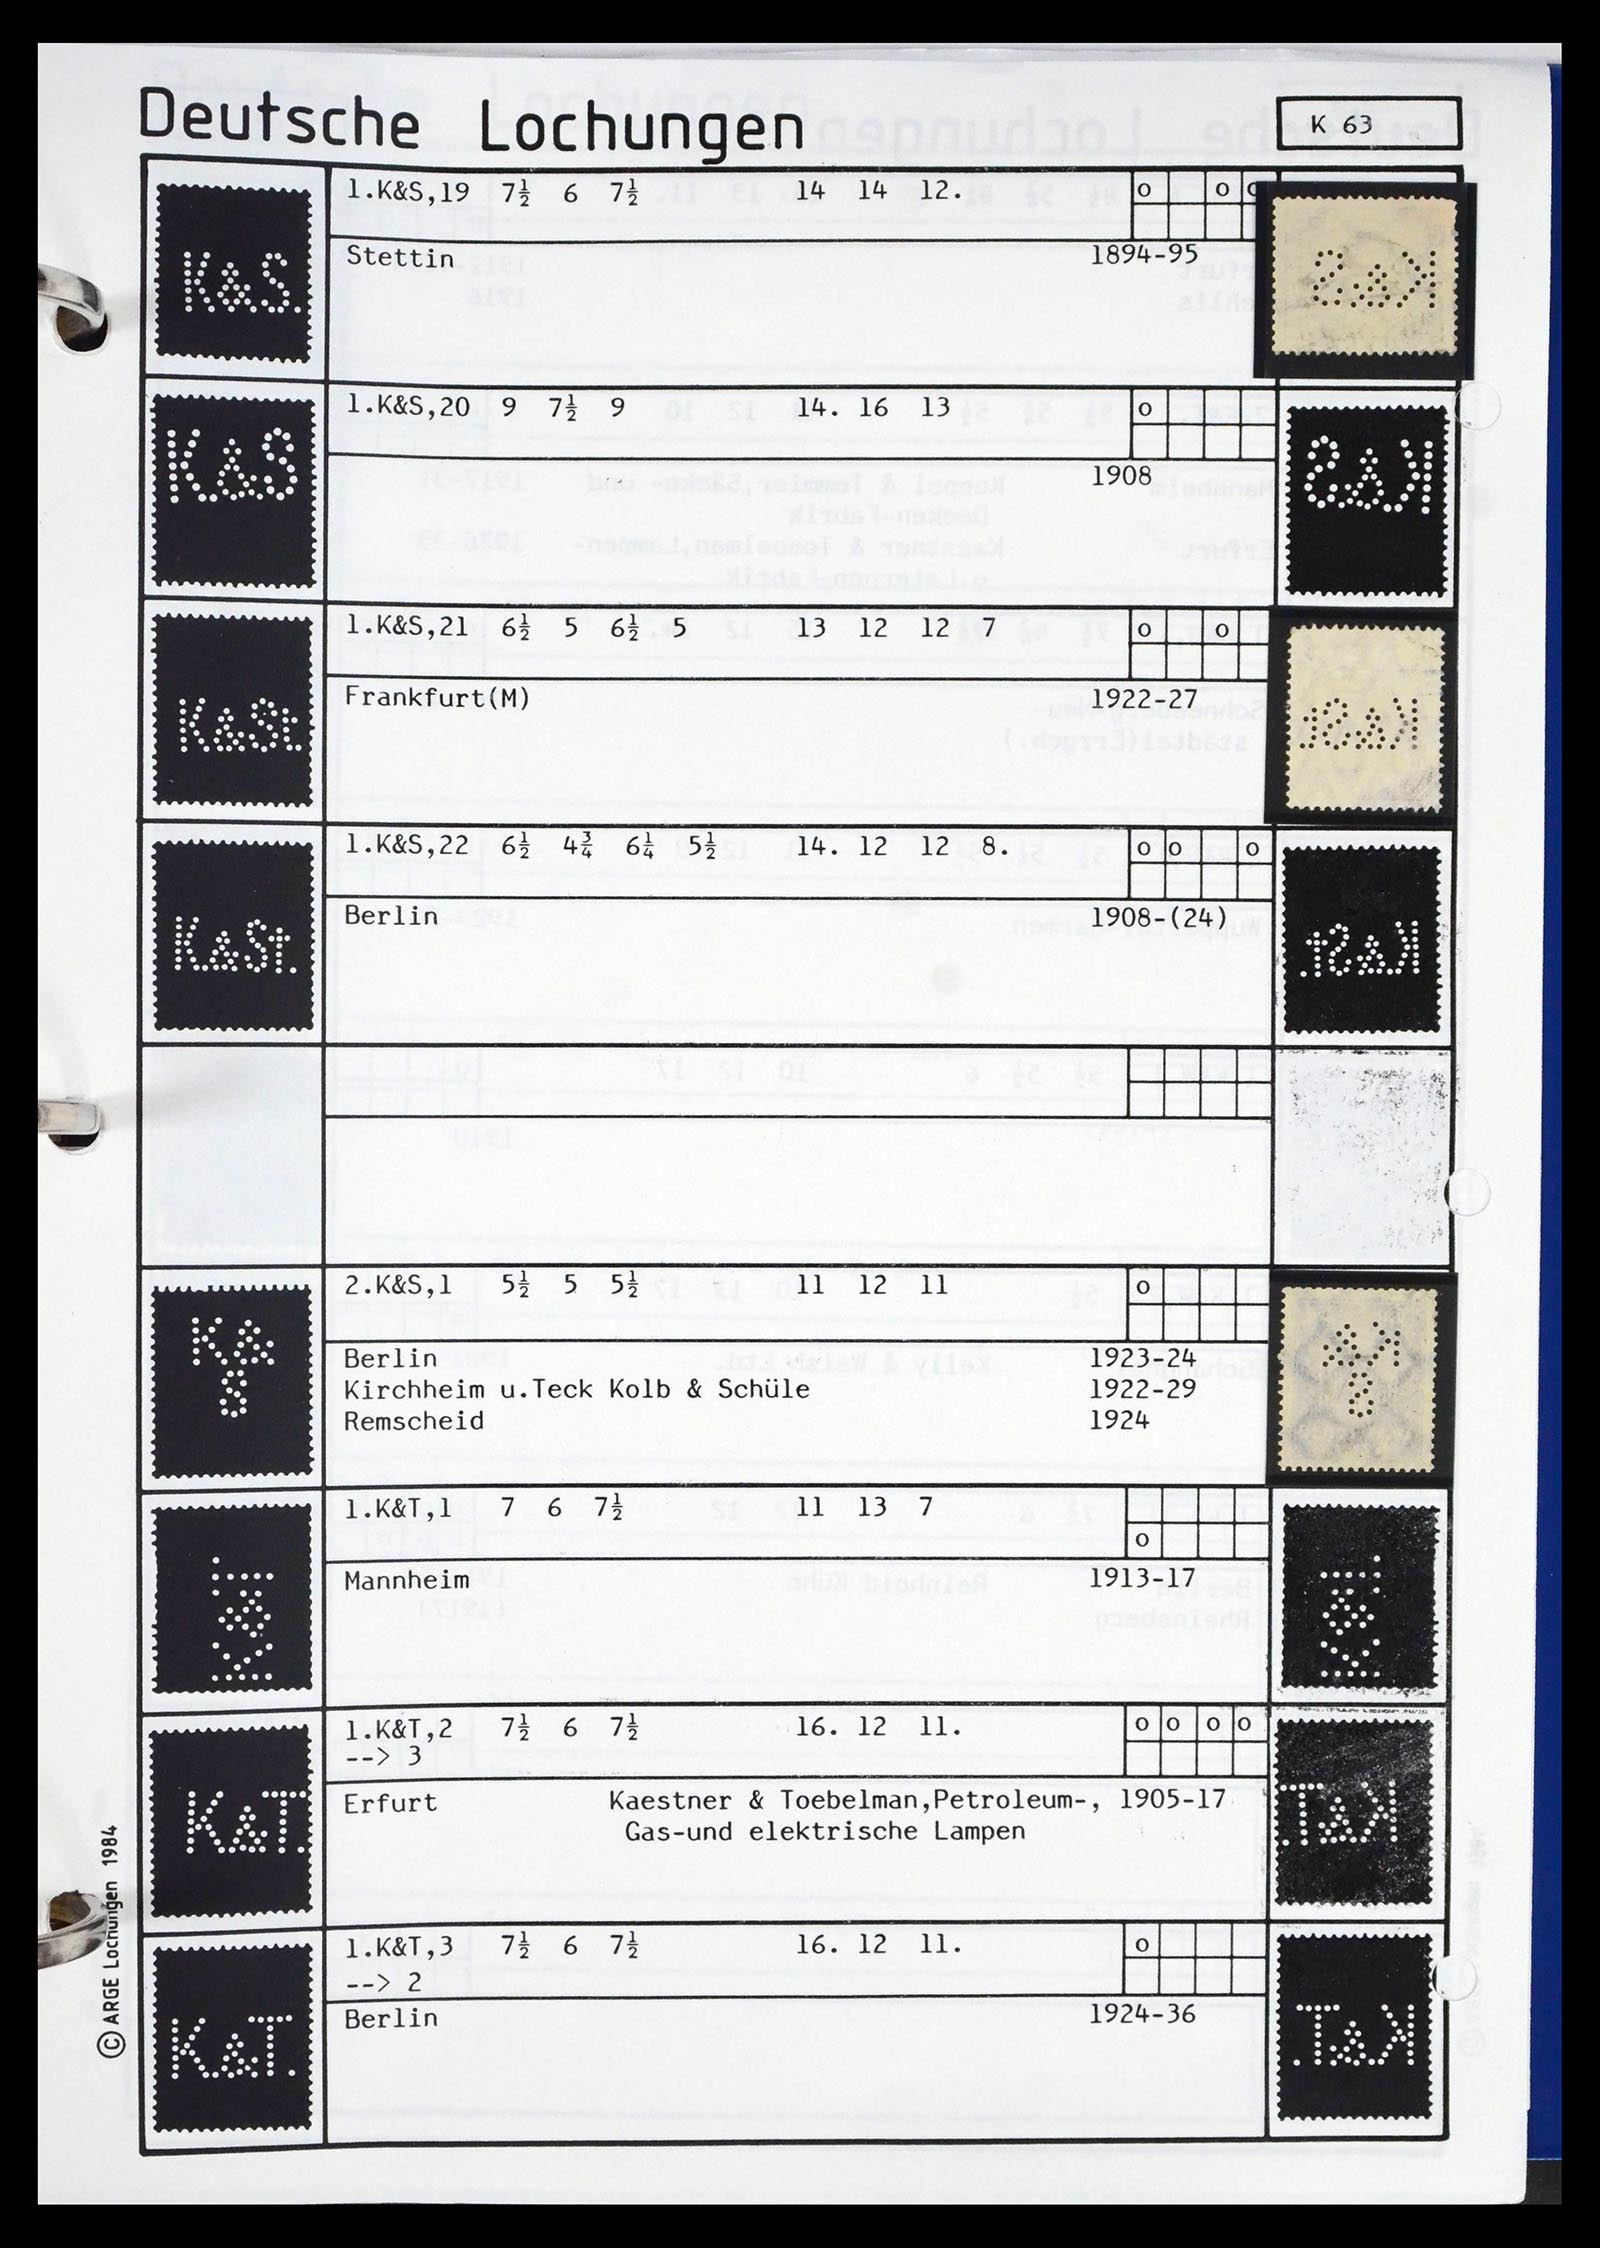 Deutsche Lochungen
K 63
1.K&S,19 7½ 6 7½ 14 14 12. o o o
K&S.
Stettin 1894-95
K&S
1.K&S,20 9 7½ 9 14. 16 13 o
K&S
1908
K&S
1.K&S,21 6½ 5 6½ 5 13 12 12 7 o o
K&St
Frankfurt(M) 1922-27
K&St
1.K&S,22 6½ 4¾ 6¼ 5½ 14. 12 12 8. o o o
K&St.
Berlin 1908-(24)
K&St.
2.K&S,1 5½ 5 5½ 11 12 11 o
K&
S
Berlin 1923-24
Kirchheim u.Teck Kolb & Schüle 1922-29
Remscheid 1924
K&
S
1.K&T,1 7 6 7½ 11 13 7
o
K&T
Mannheim 1913-17
K&T
1.K&T,2 7½ 6 7½ 16. 12 11. o o o o
--> 3
K&T.
Erfurt Kaestner & Toebelman,Petroleum-, 1905-17
Gas-und elektrische Lampen
K&T.
1.K&T,3 7½ 6 7½ 16. 12 11. o
--> 2
K&T.
Berlin 1924-36
K&T.
© ARGE Lochungen 1984